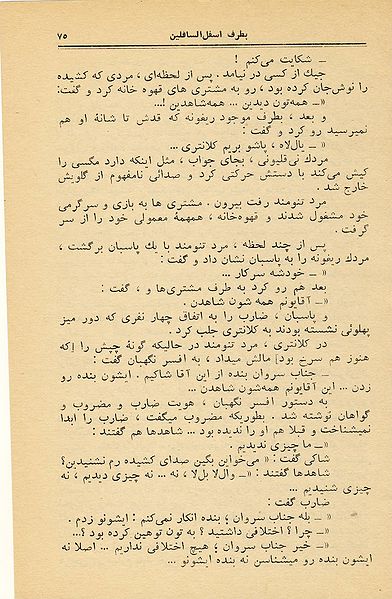 بطرف اسفل‌السافلین ۷۵
ــ شکایت می‌کنم !
جیک از کسی در نیامد . پس از لحظه‌ای ، مردی که کشیده
را نوش‌جان کرده بود ، رو به مشتری های قهوه خانه کرد و گفت :
«ــ همه‌تون دیدین ... همه‌شاهدین !...
و بعد ، بطرف موجود ریغونه که قدش تا شانهٔ او هم
نمیرسید رو کرد و گفت :
«ــ یال‌لاه ، پاشو بریم کلانتری ...
مردك نی‌قلیونی ، بجای جواب ، مثل اینکه دارد مگسی را
کیش می‌کند با دستش حرکتی کرد و صدائی نامفهوم از گلویش
خارج شد .
مرد تنومند رفت بیرون . مشتری ها به بازی و سرگرمی
خود مشغول شدند و قهوه‌خانه ، همهمهٔ معمولی خود را از سر
گرفت .
پس از چند لحظه ، مرد تنومند با یك پاسبان برگشت ،
مردك ریغونه را به پاسبان نشان داد و گفت :
«ــ خودشه سرکار ...
بعد هم رو کرد به طرف مشتری‌ها و ، گفت :
«ــ آقایونم همه شون شاهدن .
و پاسبان ، ضارب را به اتفاق چهار نفری که دور میز
پهلوئی نشسته بودند به کلانتری جلب کرد .
در کلانتری ، مرد تنومند در حالیکه گونهٔ چپش را [که
هنوز هم سرخ بود] مالش میداد ، به افسر نگهبان گفت :
ــ جناب سروان بنده از این آقا شاکیم . ایشون بنده رو
زدن ... این آقایونم همه‌شون شاهدن ...
به دستور افسر نگهبان ، هویت ضارب و مضروب و
گواهان نوشته شد . بطوریکه مضروب میگفت ، ضارب را ابدا
نمیشناخت و قبلا هم او را ندیده بود ... شاهدها هم گفتند :
«ــ ما چیزی ندیدیم .
شاکی گفت : «ــ می‌خواین بگین صدای کشیده رم نشنیدین ؟
شاهدها گفتند : «ــ وال‌لا بل‌لا ، نه ... نه چیزی دیدیم ، نه
چیزی شنیدیم ...
ضارب گفت :
«ــ بله جناب سروان ؛ بنده انکار نمی‌کنم : ایشونو زدم .
«ــ چرا ؟ اختلافی داشتید ؟ به تون توهین کرده بود ؟...
«ــ خیر جناب سروان ؛ هیچ اختلافی نداریم ... اصلا نه
ایشون بنده رو میشناسن نه بنده ایشونو ...